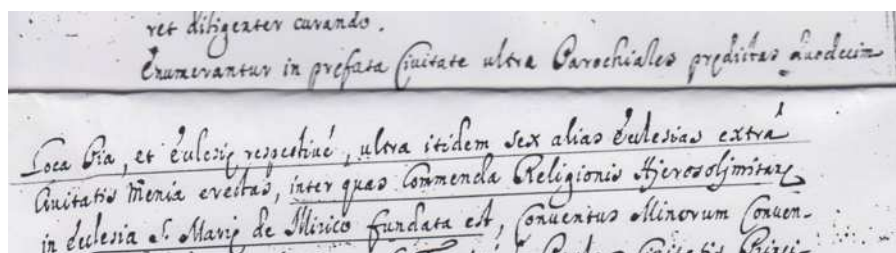 ret diligenter curando.
Enumerantur in prefata Civitate ultra Parochiales predictas duodecim
Loca Pia, et Eulesiç respectiué, ultra itidem sex alias Eulesias extrá
Civitatis menia erectas, inter quas Commenda Religionis Hjerosolimitanç
in Eulesia S. Mariç de Mirico fundata est, Conventus Minorum Conven-